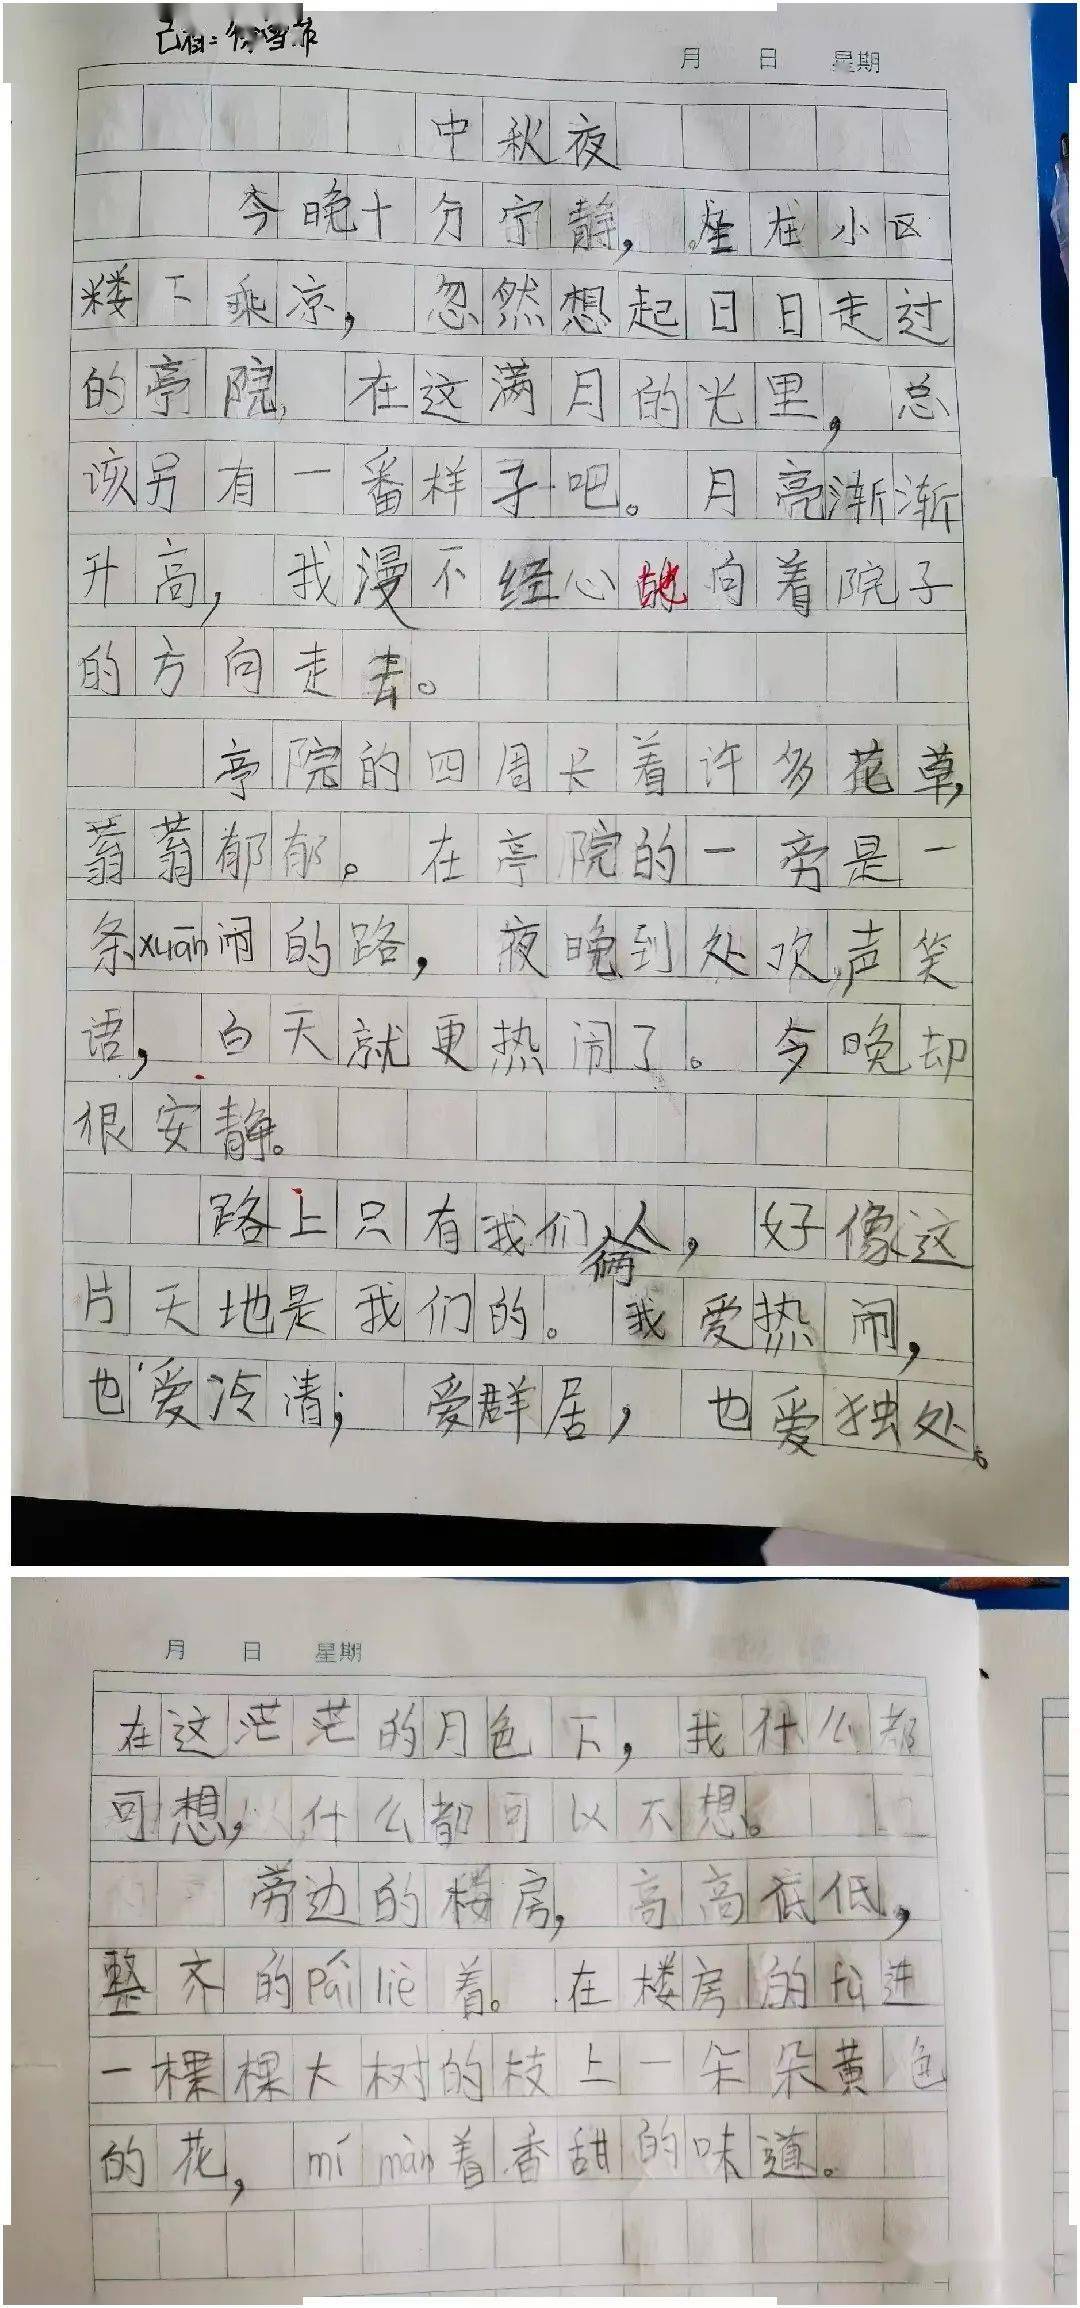 月 日 星期
中秋夜
今晚十分宁静，坐在小区
楼下乘凉，忽然想起日日走过
的亭院，在这满月的光里，总
该另有一番样子吧。月亮渐渐
升高，我漫不经心地向着院子
的方向走去。
亭院的四周长着许多花草，
蓊蓊郁郁。在亭院的一旁是一
条xuān闹的路，夜晚到处欢声笑
语，白天就更热闹了。今晚却
很安静。
路上只有我们俩人，好像这
片天地是我们的。我爱热闹，
也爱冷清；爱群居，也爱独处。
月 日 星期
在这茫茫的月色下，我什么都
可想，什么都可以不想。
旁边的楼房，高高低低，
整齐的pái liè着。在楼房的fù进
一棵棵大树的枝上一朵朵黄色
的花，mí màn着香甜的味道。